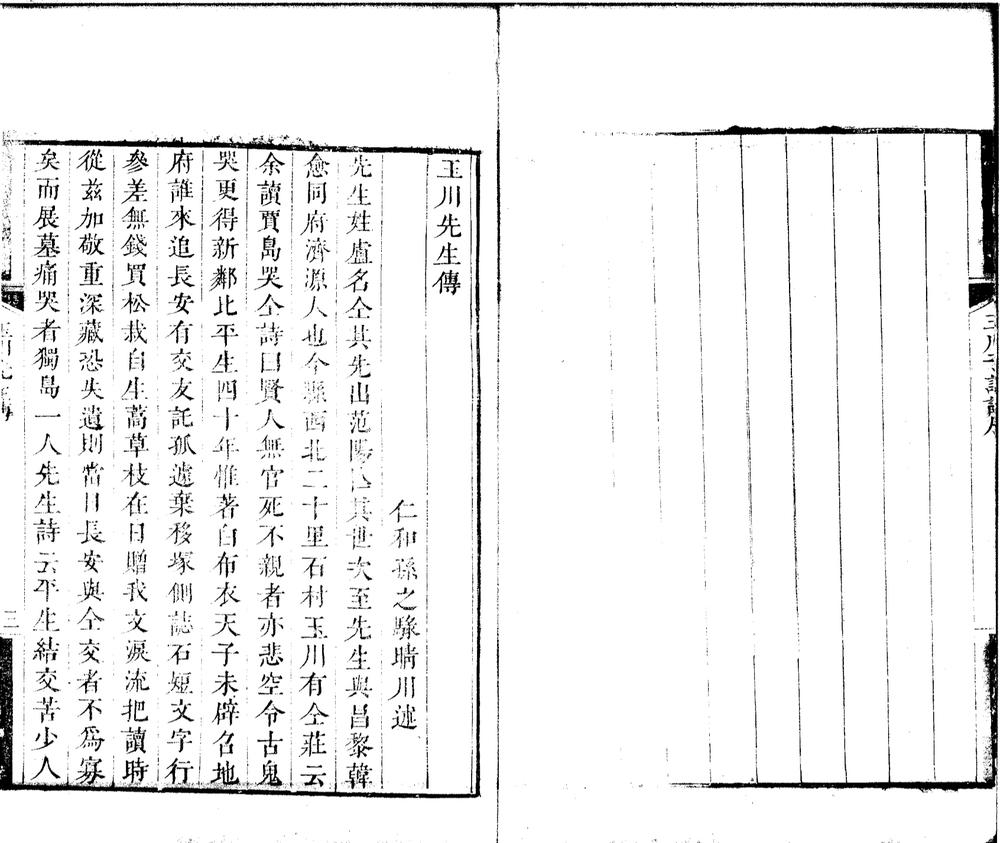 玉川先生傳
仁和孫之騄晴川述
先生姓盧名仝其先出范陽其世次至先生與昌黎韓
愈同府濟源人也今縣西北二十里石村玉川有仝莊云
余讀賈島哭仝詩曰賢人無官死不親者亦悲空令古鬼
哭更得新鄰比平生四十年惟著白布衣天子未辟召地
府誰來追長安有交友託孤遽棄移塚側誌石短文字行
參差無錢買松栽自生蒿草枝在日贈我文淚流把讀時
從茲加敬重深藏恐失遺則當日長安與仝交者不爲寡
矣而展墓痛哭者獨島一人先生詩云平生結交苦少人
三